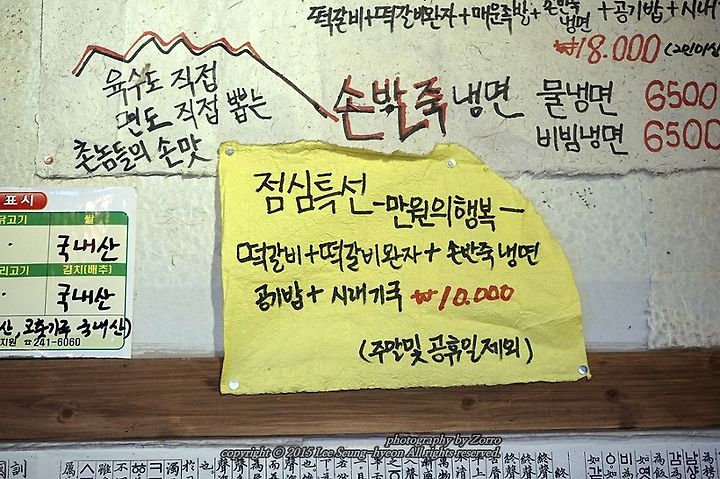 떡갈비+떡갈비완자+매운족발+손반죽냉면+공기밥+시래
₩18.000 (2인이상
육수도 직접
면도 직접 뽑는
촌놈들의 손맛
손반죽 냉면 물냉면 6500
비빔냉면 6500
점심특선 -만원의행복-
떡갈비+떡갈비완자+손반죽냉면
공기밥+시래기국 ₩10.000
(주말및 공휴일제외)
표시
닭고기 쌀
국내산
리고기 김치(배추)
국내산
국내산)
지원 ☎241-6060
photography by Zorro
copyright © 2015 Lee Seung-hyeon All rights reserved.